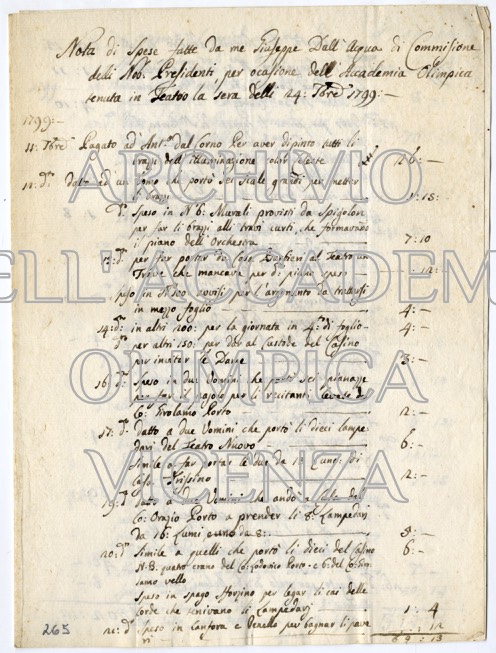 Nota di Spese fatte da me Giuseppe Dall'Acqua di Commisione
delli Nob. Presidenti per ocasione dell'Accademia Olimpica
tenuta in Teatro la sera delli 24: 7bre 1799:-
1799:-
11: 7bre Pagato ad Ant.o dal Corno Per aver dipinto tutti li
brazi dell'illuminazione color celeste 12 6:-
d.o dato ad un homo che portò sei scale grandi per metter
li brazi 1:18:-
d.o Speso in N.o 6: Murali provisti da Spigolon
per far li brazi alli travi curti, che formavano
il piano dell'Orchestra 7:10
13: d.o per far portar in Teatro un
Trave che mancava per d.o piano speso :12:-
speso in N.o 300: per l'argomento da
in mezzo foglio 4:-
14: d.o in altri 200: per la giornata in 4.o di foglio 4:-
d.o per altri 150: per dar al Custode del Casino
per invitar le Dame 3:-
16: d.o Speso in due Uomini che portò sei
per far il palco per li recitanti
Co: Girolamo Porto 12:-
17: d.o datto a due Uomini che portò li dieci lampe
dari del Teatro Nuovo 6:-
Simile a far portar le due da 18: Lumi: di
Casa Trissino 2:-
19: d.o datto a due Uomini che andò a
Co: Orazio Porto a prender li 8: Lampedari
da 16: Lumi e uno da 8: 3:-
20: d.o Simile a quelli che portò li dieci del Casino 6:-
N.B. quatro erano del Co: Lodovico Porto e 6: del
Speso in spago sforzino per legar li cai delle
corde che servivano li Lampedari 1:4
21: d.o Speso in Canfora e per bagnar li pave
ri :12
69:13
265
ARCHIVIO
DELL'ACCADEMIA
OLIMPICA
VICENZA